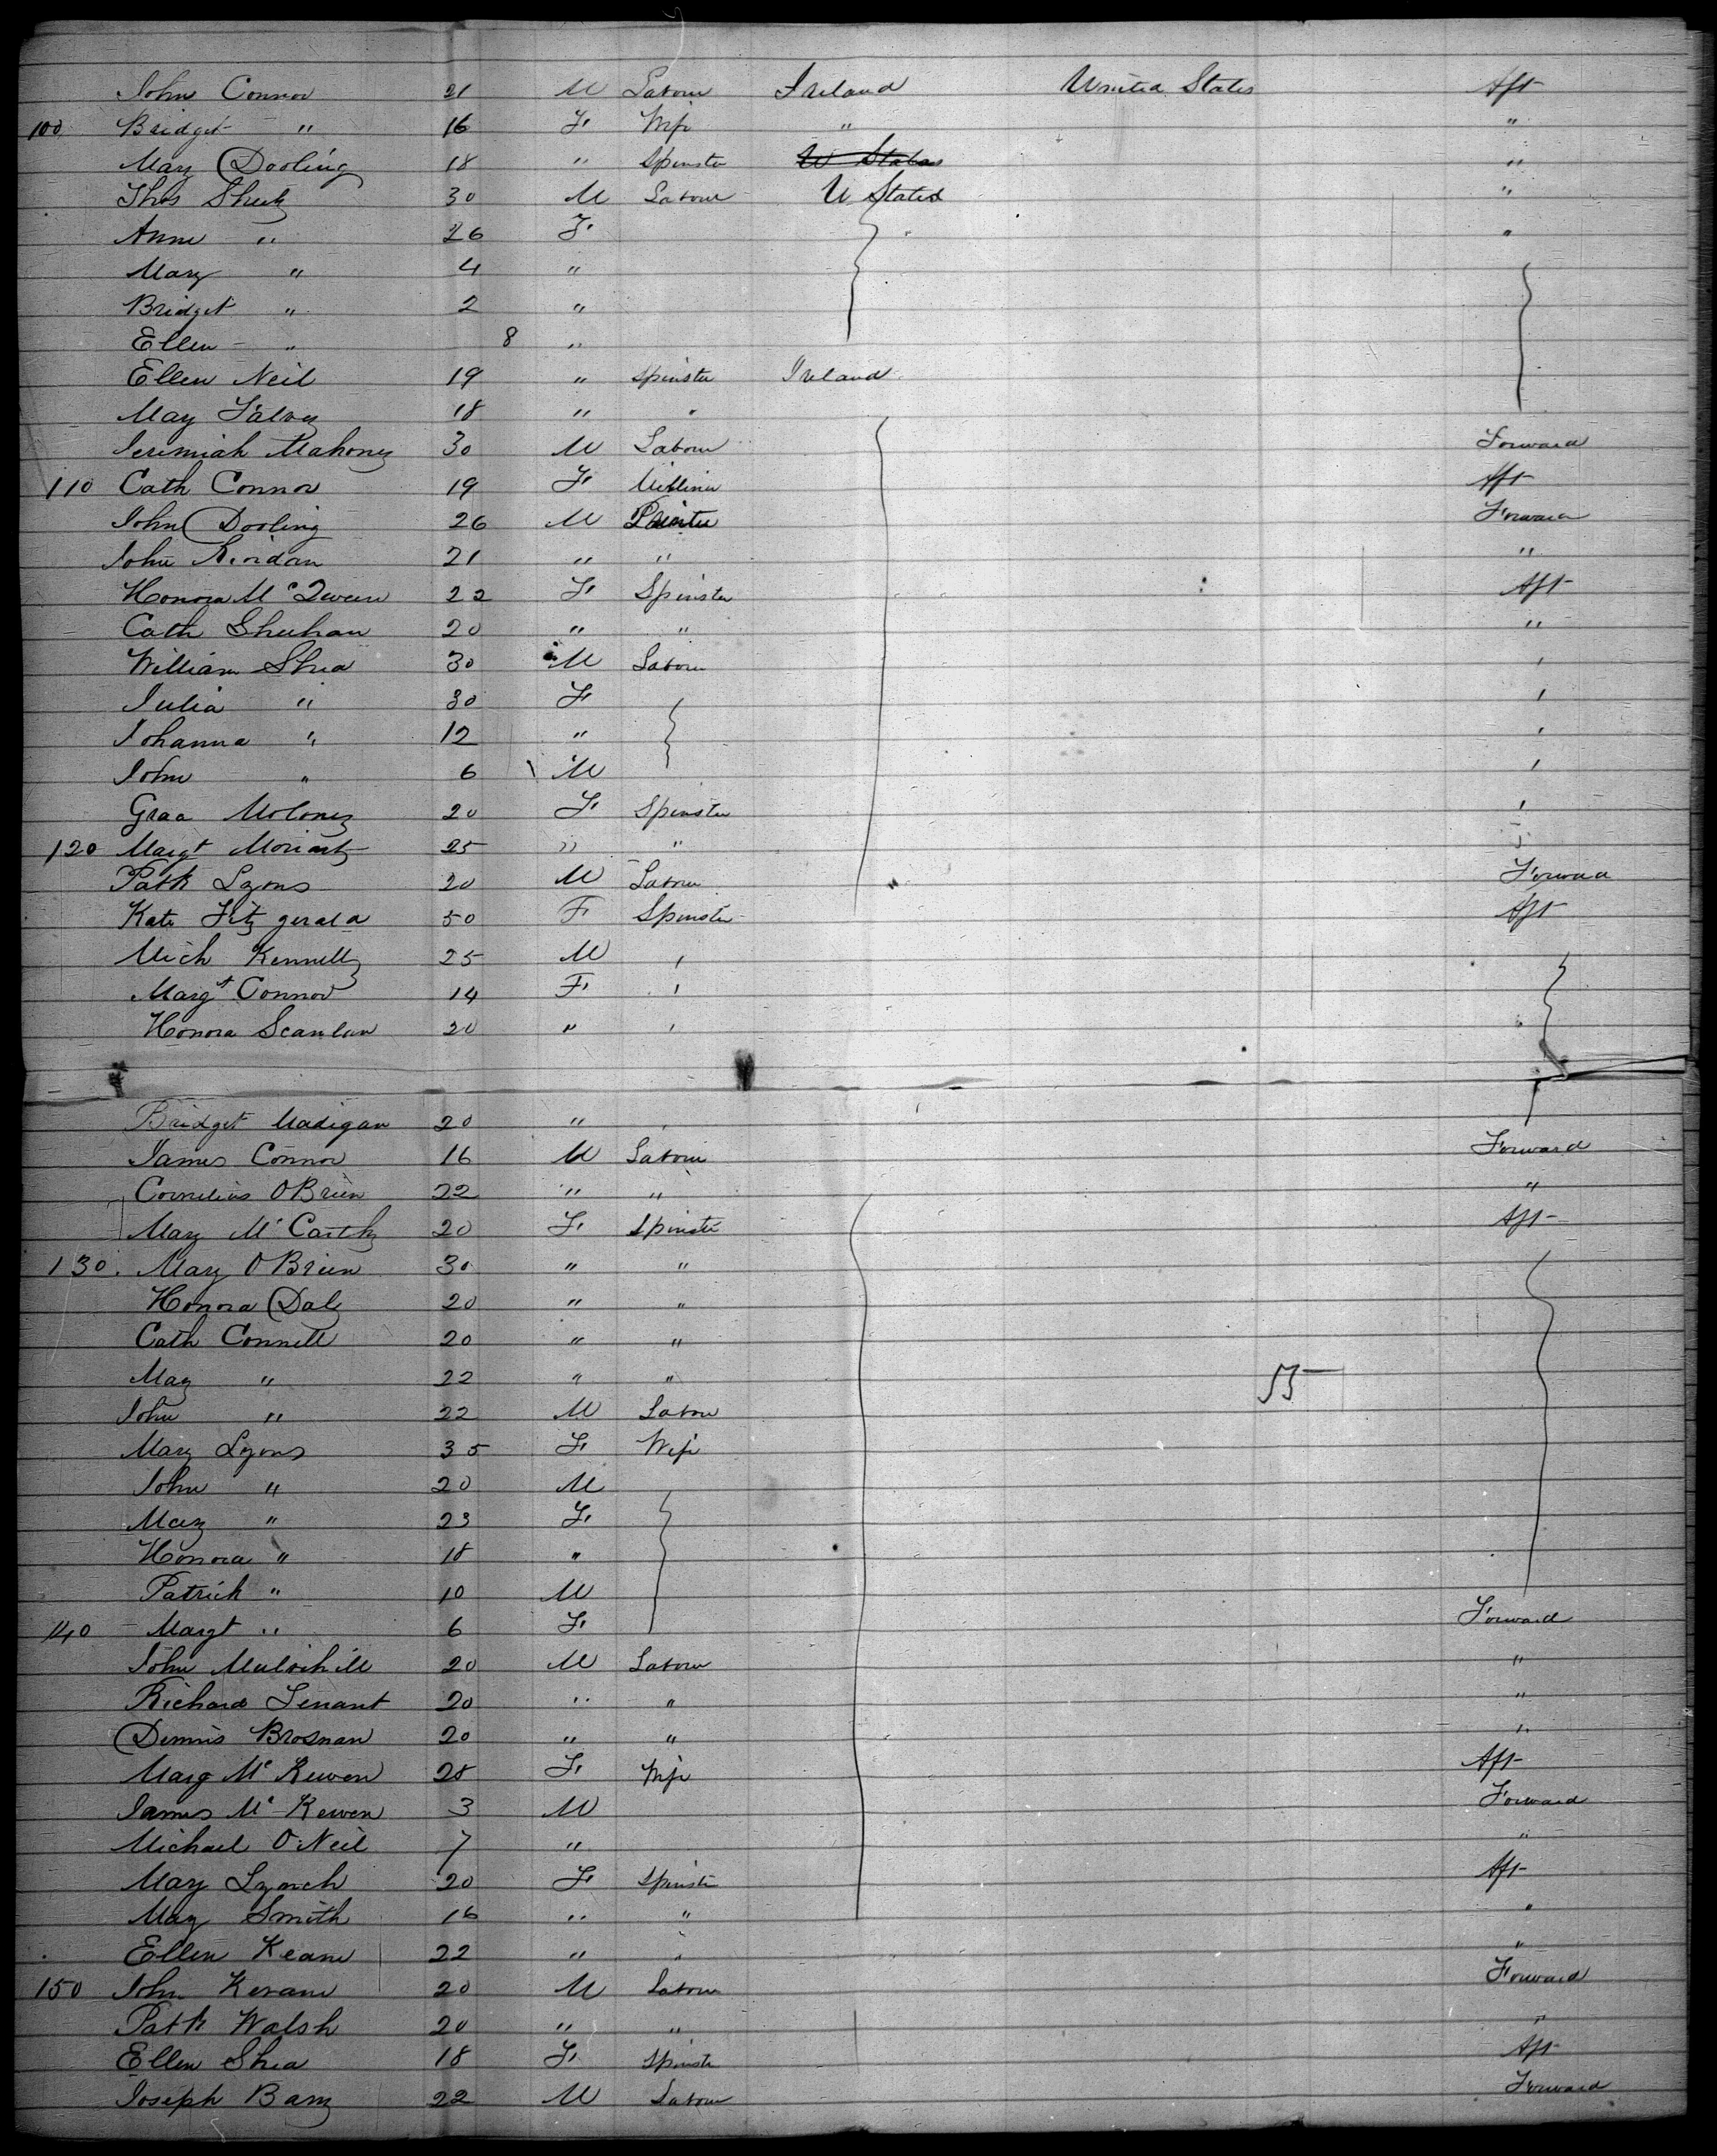 John Connor 21 M Labour Ireland United States Aft
100 Bridget " 16 F. Wife " "
Mary Dooling 18 " Spinster U States "
Thos Sheehy 30 M Labour U States "
Anne " 26 F. "
Mary " 4 "
Bridget " 2 "
Ellen " 8 "
Ellen Neil 19 " Spinster Ireland
Mary Falvey 18 " "
Jeremiah Mahony 30 M Labour Forward
110 Cath Connor 19 F. Milliner Aft
John Dooling 26 M Forward
John Riordan 21 " " "
Honora Mc 22 F. Spinster Aft
Cath Sheehan 20 " " "
William Shea 30 M Labour '
Julia " 30 F. '
Johanna " 12 " '
John " 6 M '
Moloney 20 F. Spinster '
120 Margt Moriarty 25 " "
Patk Lyons 20 M Labour Forward
Kate Fitzgerald 50 F Spinster Aft
Mich Kennelly 25 M '
Margt Connor 14 F. '
Honora Scanlan 20 " '
Bridget Madigan 20 " '
James Connor 16 M Labour Forward
Cornelius OBrien 22 " " "
Mary McCarthy 20 F. Spinster Aft
130. Mary OBrien 30 " "
Honora Daly 20 " "
Cath Connell 20 " "
May " 22 " " 55
John " 22 M Labour
Mary Lyons 35 F. Wife
John " 20 M
Mary " 23 F.
Honora " 18 "
Patrick " 10 M
140 Margt " 6 F. Forward
John Mulvihill 20 M Labour "
Richard Tenant 20 " " "
Dennis Brosnan 20 " " "
Marg Mc Kewen 28 F. Wife Aft
James Mc Kewen 3 M Forward
Michael O Neil 7 " "
Mary Lynch 20 F. Spinster Aft
May Smith 16 " " "
Ellen Keane 22 " " "
150 John 20 M Labour Forward
Patk Walsh 20 " " "
Ellen Shea 18 F. Spinster Aft
Joseph Barry 22 M Labour Forward